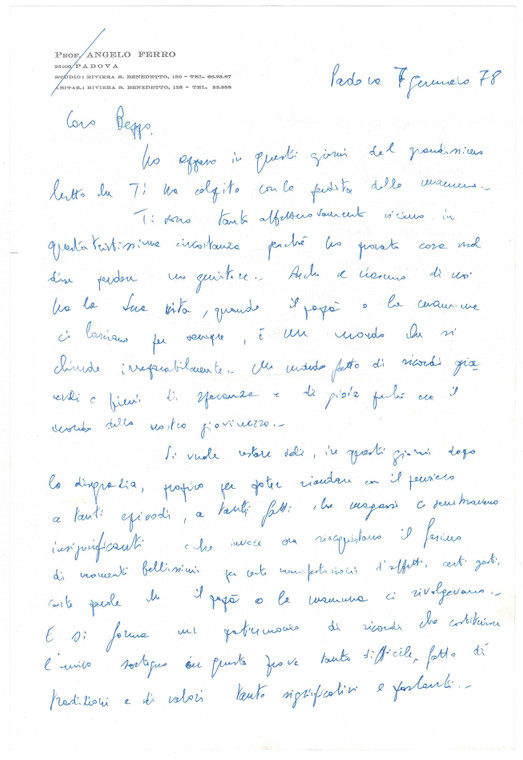 PROF. ANGELO FERRO
35100 PADOVA
STUDIO: RIVIERA S. BENEDETTO, 150 - TEL.
ABITAZ.: RIVIERA S. BENEDETTO, 158 - TEL.
Padova 7 gennaio 78
Caro Beppo,
Ho appreso in questi giorni del grandissimo
lutto che Ti ha colpito con la perdita della mamma.-
Ti sono tanto affettuosamente vicino in
questa tristissima circostanza perché ho provato cosa vuol
dire perdere un genitore.- Anche se ciascuno di noi
ha la Sua vita, quando il papà o la mamma
ci lasciano per sempre, è un mondo che si
chiude irreparabilmente.- Un mondo fatto di ricordi
e pieni di speranza e di gioia perché era il
mondo della nostra giovinezza.-
Si vuole restare soli, in questi giorni dopo
la disgrazia, proprio per poter riandare con il pensiero
a tanti episodi, a tanti fatti che magari ci sembravano
insignificanti e che invece ora riacquistano il fascino
di momenti bellissimi per certe manifestazioni d'affetto, certi gesti,
certe parole che il papà o la mamma ci rivolgevano.-
E si forma un patrimonio di ricordi che costituisce
l'unico sostegno in questa prova tanto difficile, fatto di
tradizioni e di valori tanto significativi e portanti.-